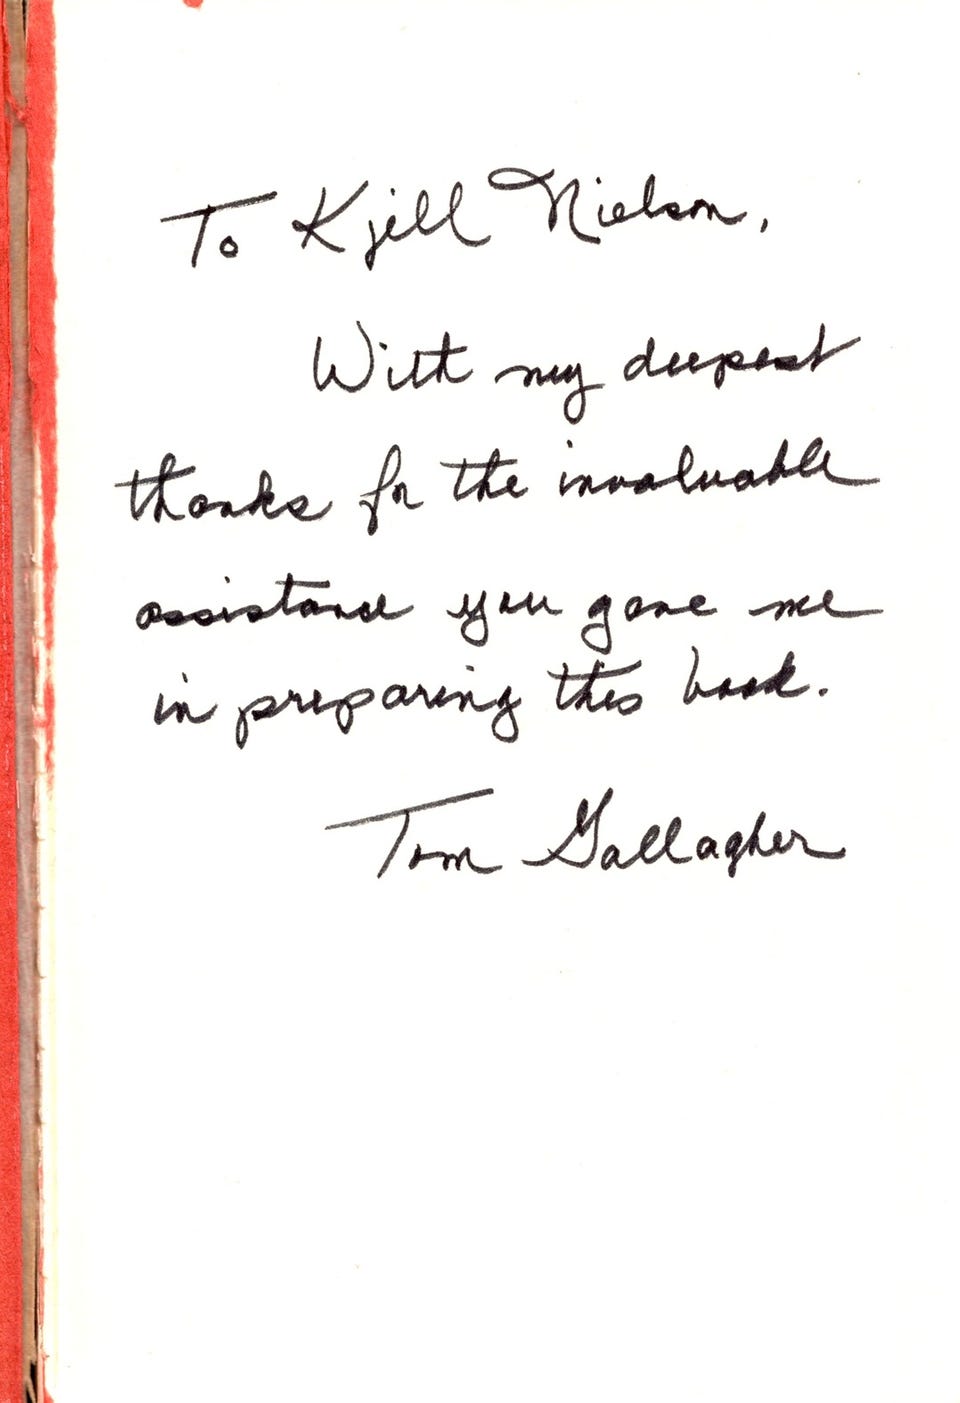 To Kjell Nielson,
With my deepest
thanks for the invaluable
assistance you gave me
in preparing this book.
Tom Gallagher